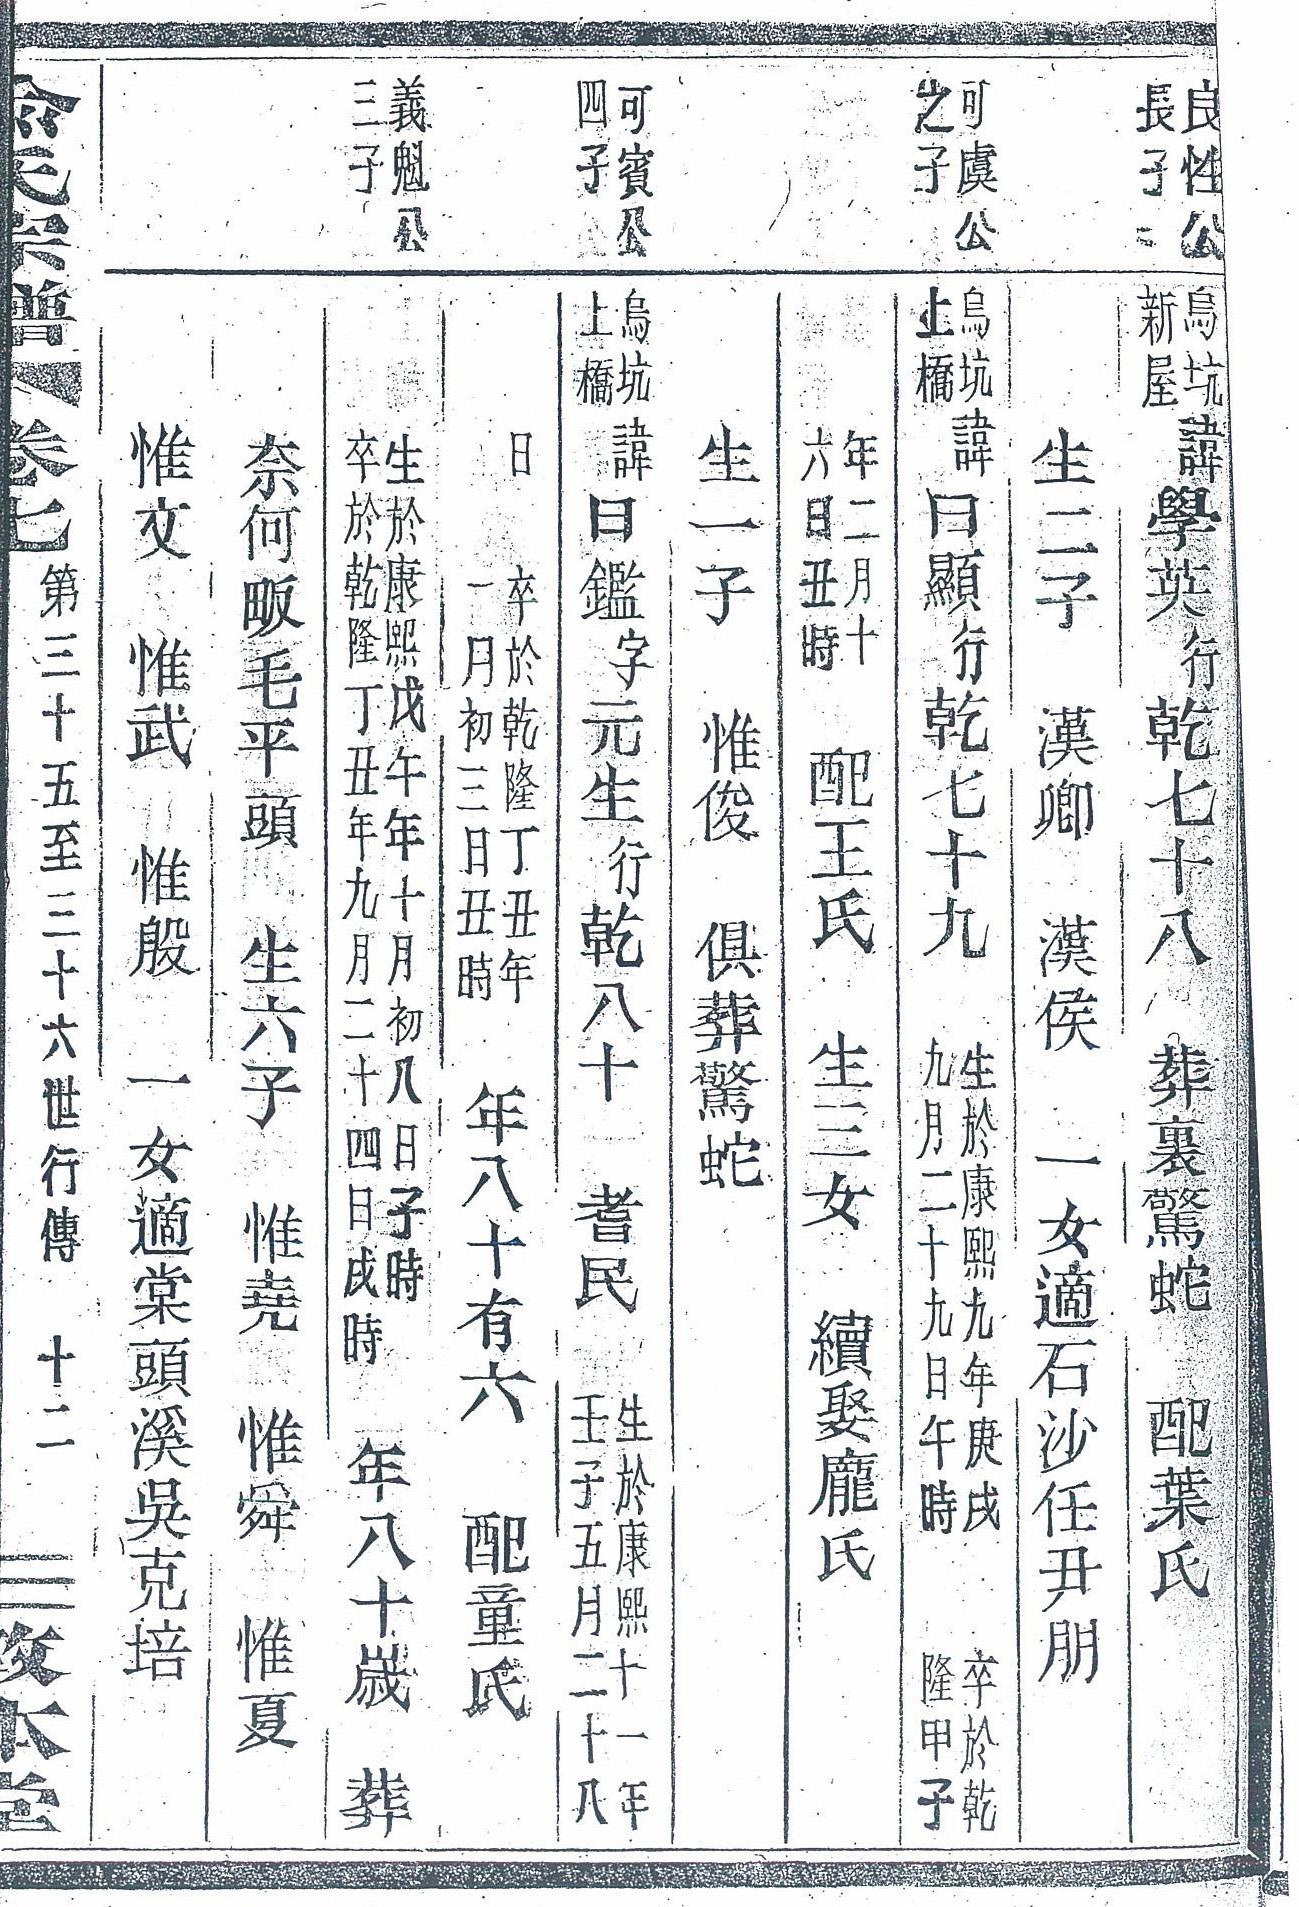 良性公
長子
烏坑
新屋
諱學英行乾七十八　葬裏驚蛇　配葉氏
生二子　漢卿　漢侯　一女適石沙任尹朋
可虞公
之子
烏坑
上橋
諱曰顯行乾七十九　生於康熙九年庚戌
九月二十九日午時　卒於乾
隆甲子
年二月十
六日丑時　配王氏　生三女　續娶龐氏
生一子　惟俊　俱葬驚蛇
可賓公
四子
烏坑
上橋
諱曰鑑字元生行乾八十　耆民　生於康熙十一年
壬子五月二十八
日　卒於乾隆丁丑年
一月初三日丑時　年八十有六　配童氏
義魁公
三子
生於康熙戊午年十月初八日子時
卒於乾隆丁丑年九月二十四日戌時　年八十歲　葬
奈何畈毛平頭　生六子　惟堯　惟舜　惟夏
惟文　惟武　惟殷　一女適棠頭溪吳克培
俞氏宗譜　卷七　第三十五至三十六世行傳　十二　敦本堂